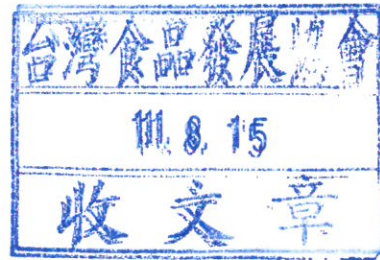 台灣食品發展協會
111. 8. 15
收文章